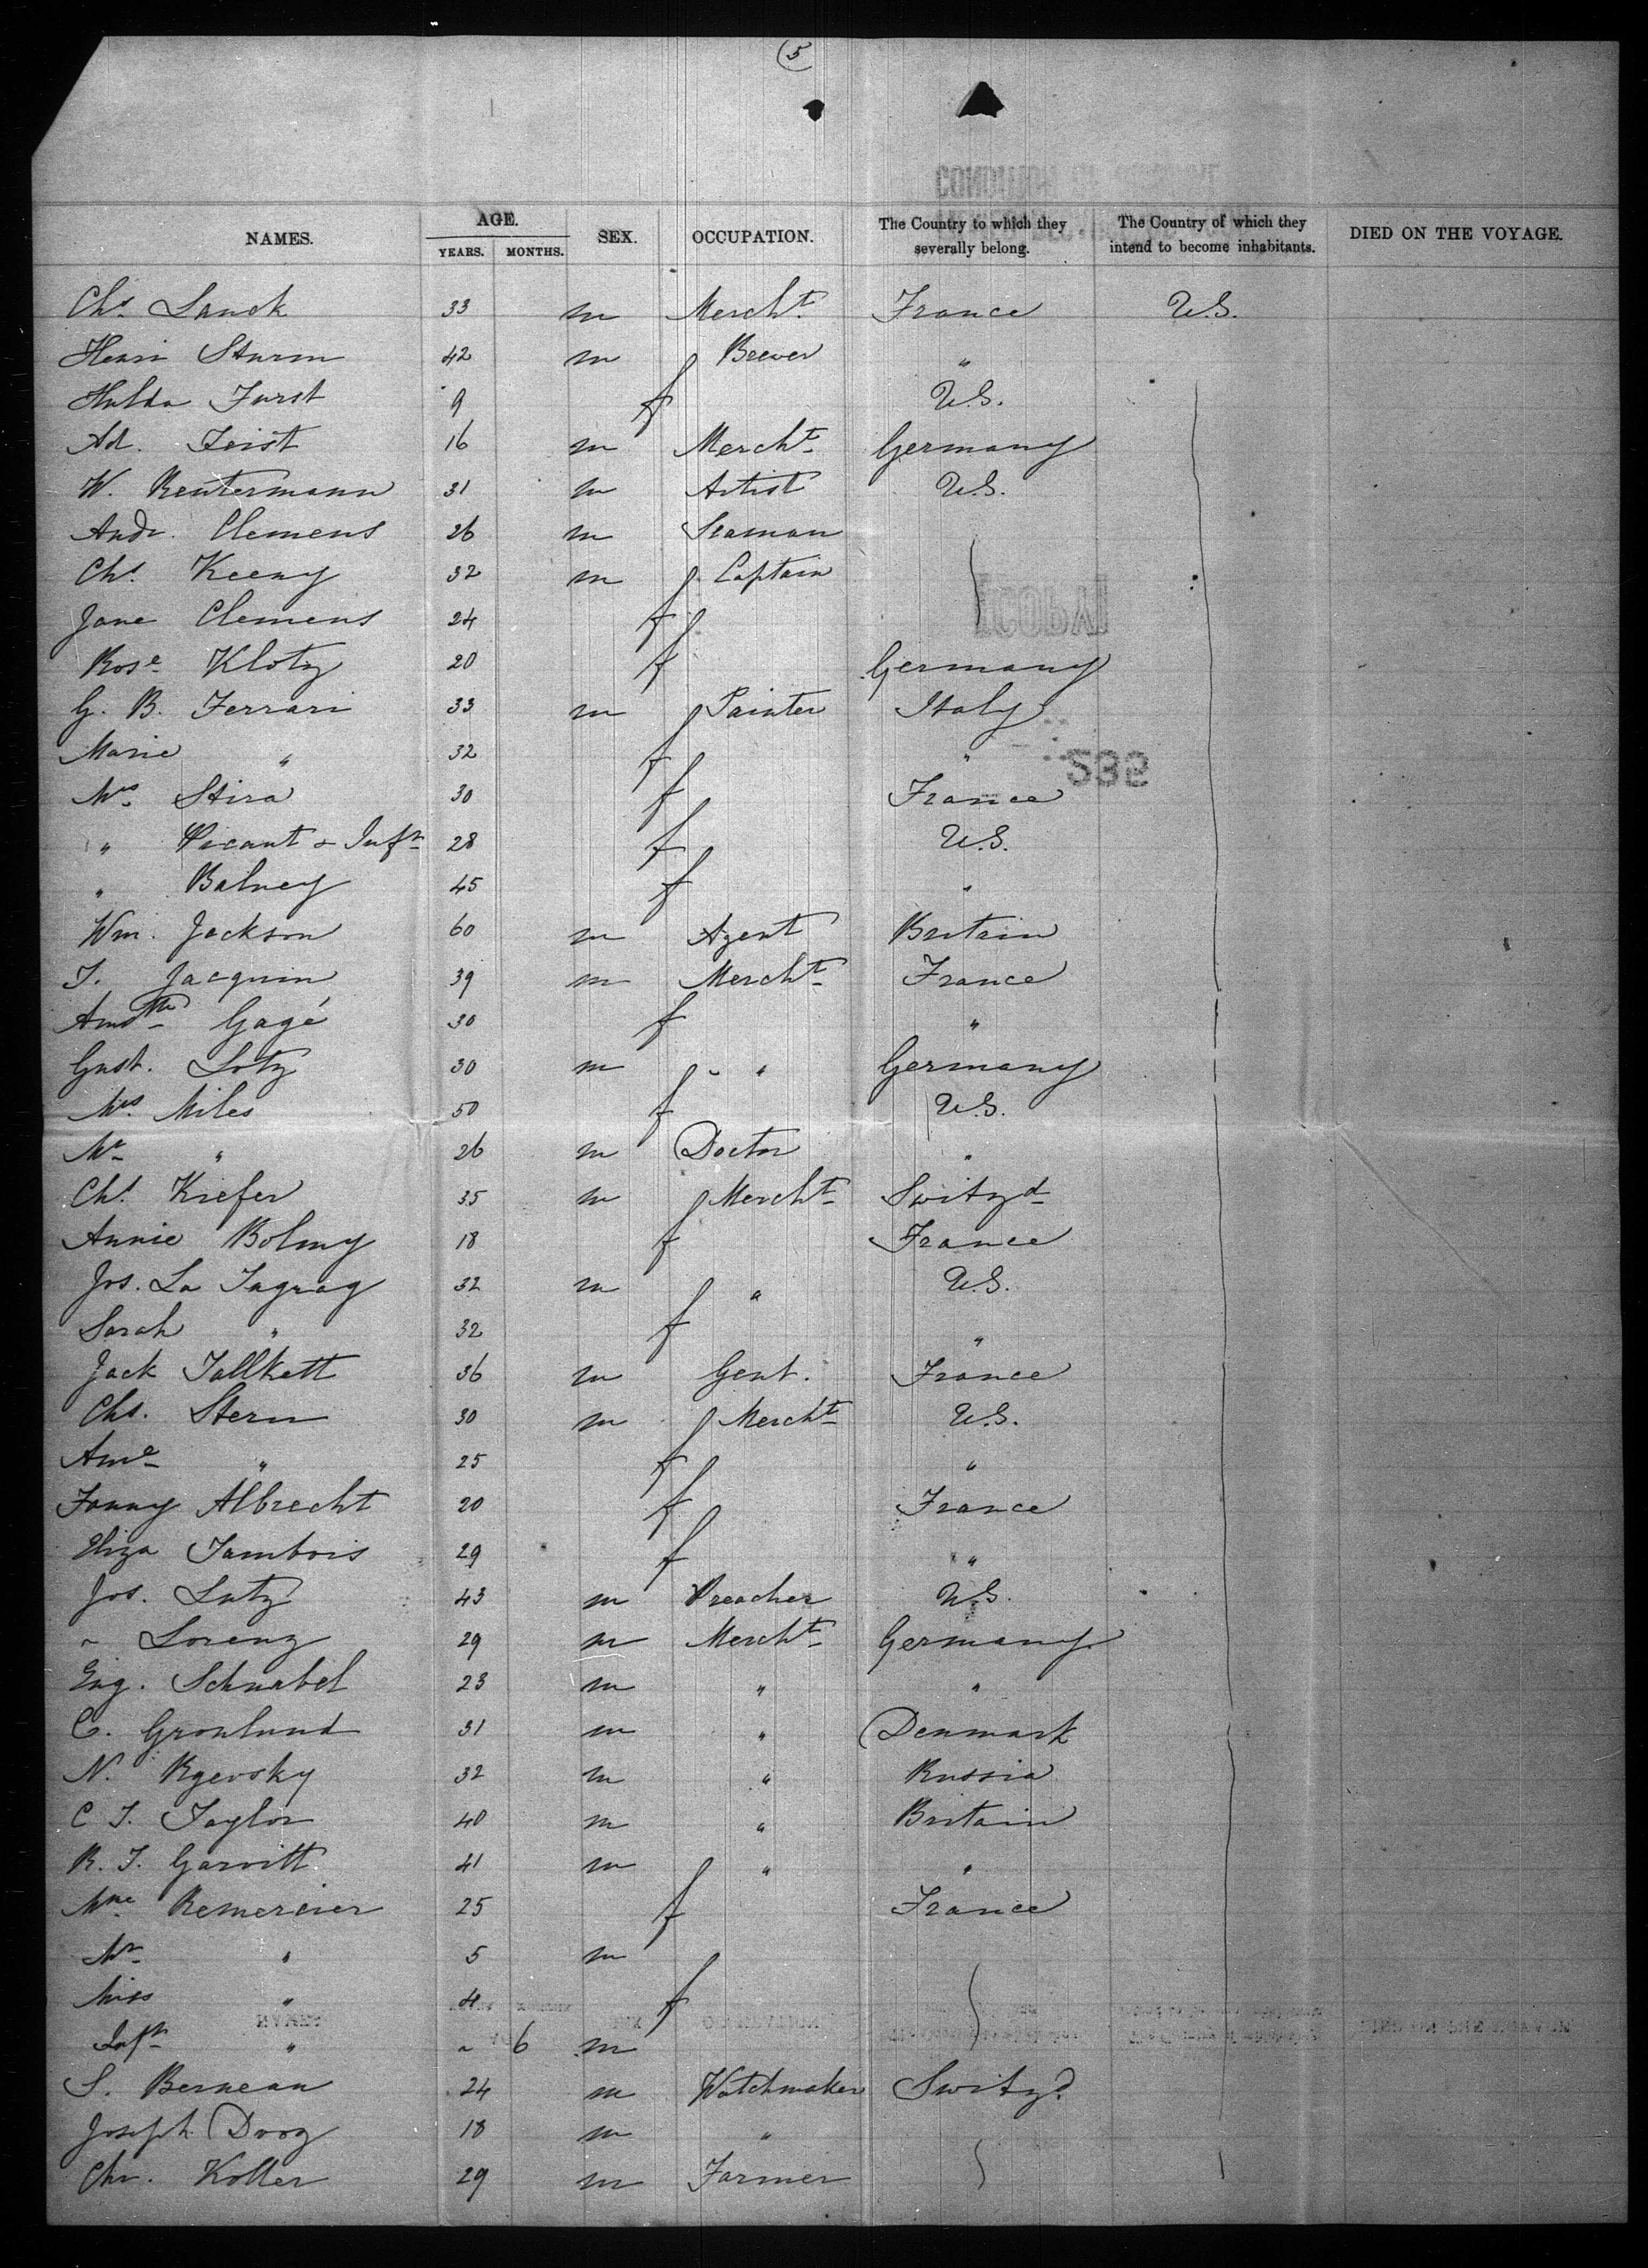 (5
CONDITION OF
NAMES. AGE. YEARS. MONTHS. SEX. OCCUPATION. The Country to which they severally belong. The Country of which they intend to become inhabitants. DIED ON THE VOYAGE.
Chs. Lauck 33 m Mercht. France U.S.
Henri Sturm 42 m Brewer "
Hulda Furst 9 f U.S.
Ad. Feist 16 m Mercht. Germany
W. Reutermann 31 m Artist U.S.
Andr. Clemens 26 m Seaman
Chs. Keeny 32 m Captain
Jane Clemens 24 f
Rose Klotz 20 f Germany
G. B. Ferrari 33 m Painter Italy
Marie " 32 f "
Mrs Stira 30 f France
" Picant & Inft 28 f U.S.
" Balney 45 f "
Wm. Jackson 60 m Agent Britain
J. Jacquin 39 m Mercht. France
Gagé 30 f "
Gust. Lotz 30 m " Germany
Mrs Miles 50 f U.S.
Mr " 26 m Doctor "
Chs. Kiefer 35 m Mercht. Switzd
Annie Bolmy 18 f France
Jos. La 32 m " U.S.
Sarah " 32 f "
Jack Tallkett 36 m Gent. France
Chs. Stern 30 m Mercht. U.S.
Ame " 25 f "
Fanny Albrecht 20 f France
Eliza Jambois 29 f "
Jos. Lutz 43 m Preacher U.S.
~ Lorenz 29 m Mercht. Germany
Eug. Schnabel 23 m " "
C. Gronlund 31 m " Denmark
N. Rgevsky 32 m " Russia
C. J. Taylor 40 m " Britain
R. J. Garvitt 41 m " "
Mme Remercier 25 f France
Mr " 5 m
Miss " 4 f
Inft " ~ 6 m
S. Berneau 24 m Watchmaker Switzd.
Joseph Doog 18 m "
Chr. Koller 29 m Farmer